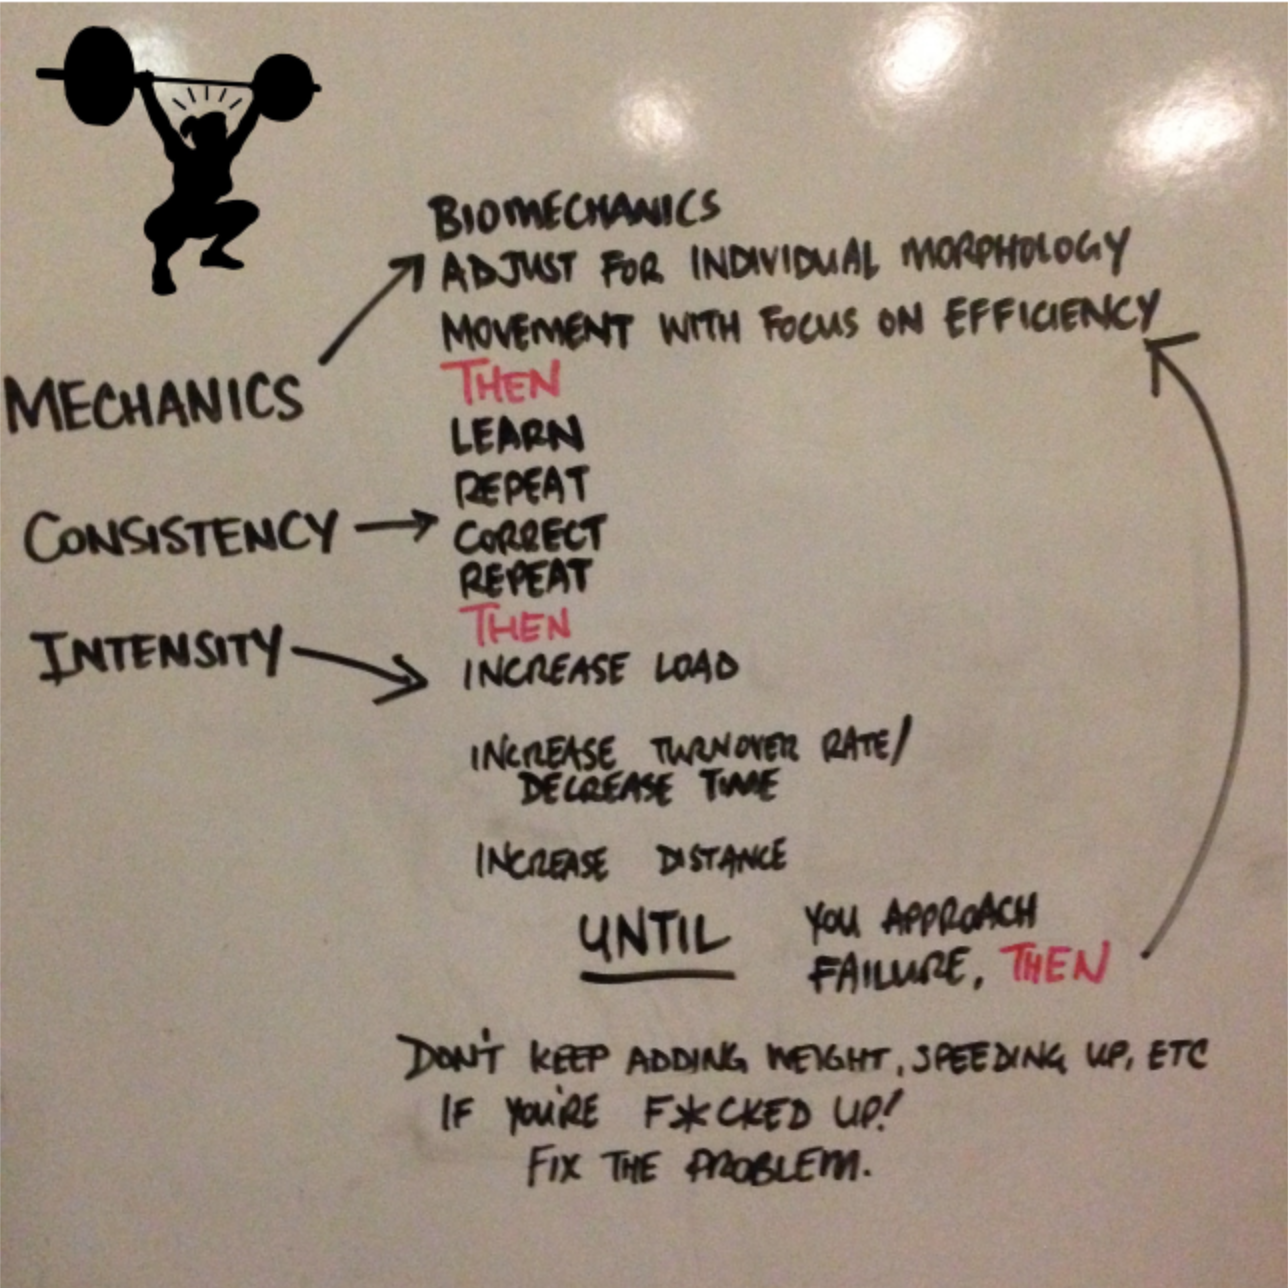 BIOMECHANICS
ADJUST FOR INDIVIDUAL MORPHOLOGY
MOVEMENT WITH FOCUS ON EFFICIENCY
THEN
MECHANICS
LEARN
REPEAT
CONSISTENCY
CORRECT
REPEAT
THEN
INTENSITY
INCREASE LOAD
INCREASE TURNOVER RATE/
DECREASE TIME
INCREASE DISTANCE
UNTIL YOU APPROACH
FAILURE, THEN
DON'T KEEP ADDING WEIGHT, SPEEDING UP, ETC
IF YOU'RE F*CKED UP!
FIX THE PROBLEM.